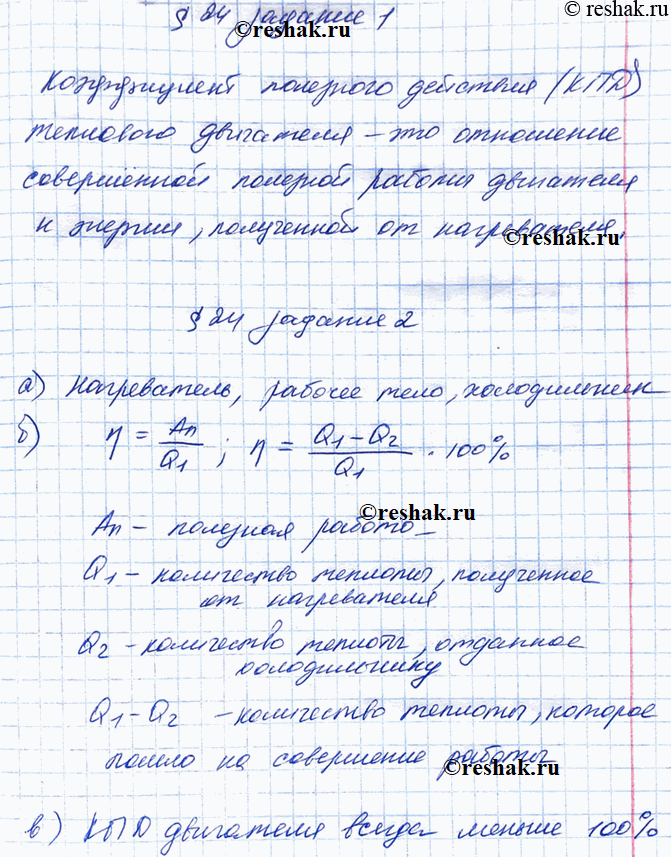 ©reshak.ru
§ 24 задание 1
©reshak.ru
Коэффициент полезного действия (КПД)
теплового двигателя – это отношение
совершённой полезной работы двигателя
к энергии, полученной от нагревателя,
©reshak.ru
§ 24 задание 2
а) Нагреватель, рабочее тело, холодильник
б) η = Aп / Q1 ; η = (Q1 – Q2) / Q1 · 100%
©reshak.ru
Aп – полезная работа
Q1 – количество теплоты, полученное
от нагревателя
Q2 – количество теплоты, отданное
холодильнику
Q1 – Q2 – количество теплоты, которое
пошло на совершение работы
©reshak.ru
в) КПД двигателя всегда меньше 100%
©reshak.ru